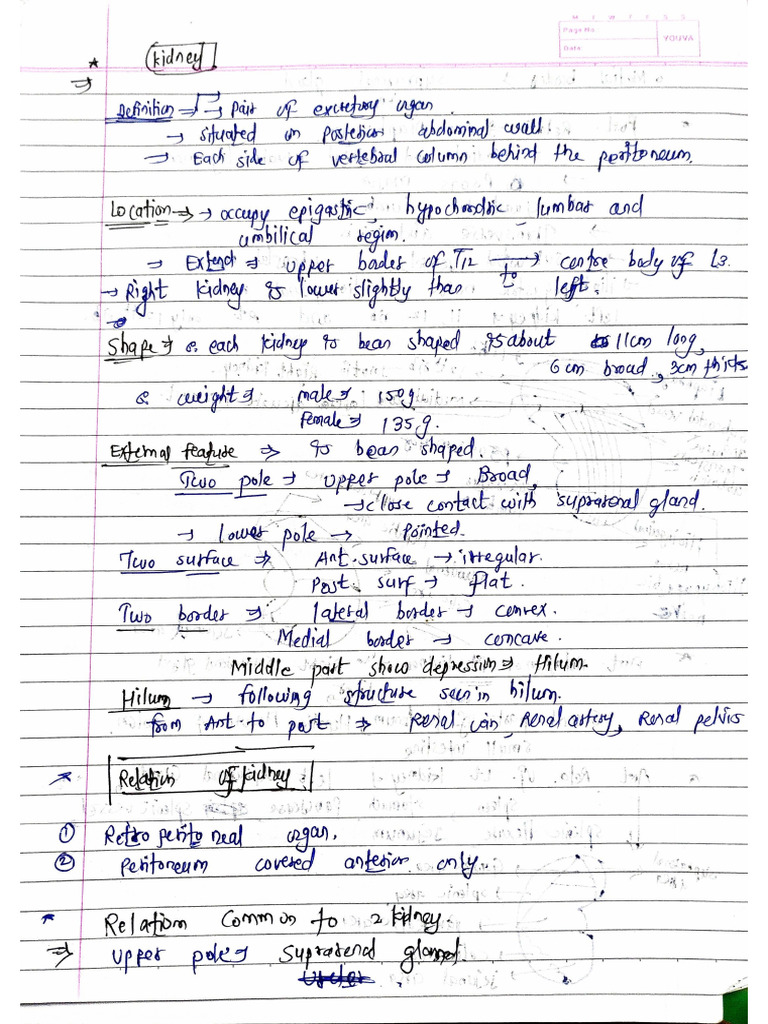 M T W T F S S
Page No.
YOUVA
Date
* Kidney
⇒
Definition ⇒ → Pair of excretory organ.
→ situated in Posterior abdominal wall
→ Each side of vertebral column behind the peritoneum.
Location → → occupy epigastric, hypochondric, lumbar and
umbilical region.
⇒ Extend ⇒ upper border of T12 → to centre body of L3.
→ Right kidney is lower slightly than left.
Shape ⇒ each kidney is bean shaped is about 11cm long,
6 cm broad, 3cm thick
weight ⇒ male ⇒ 150g
female ⇒ 135g.
External feature ⇒ is bean shaped.
Two pole → upper pole → Broad,
→ close contact with suprarenal gland.
→ lower pole → Pointed.
Two surface ⇒ Ant. surface → irregular.
Post surf → flat.
Two border ⇒ lateral border → convex.
Medial border → concave.
Middle part show depression ⇒ Hilum.
Hilum → following structure seen in hilum.
from Ant. to post ⇒ Renal vein, Renal artery, Renal pelvis
* Relation of kidney
① Retro peritoneal organ.
② Peritoneum covered anterior only
* Relation Common to 2 kidney.
⇒ upper pole → Suprarenal gland